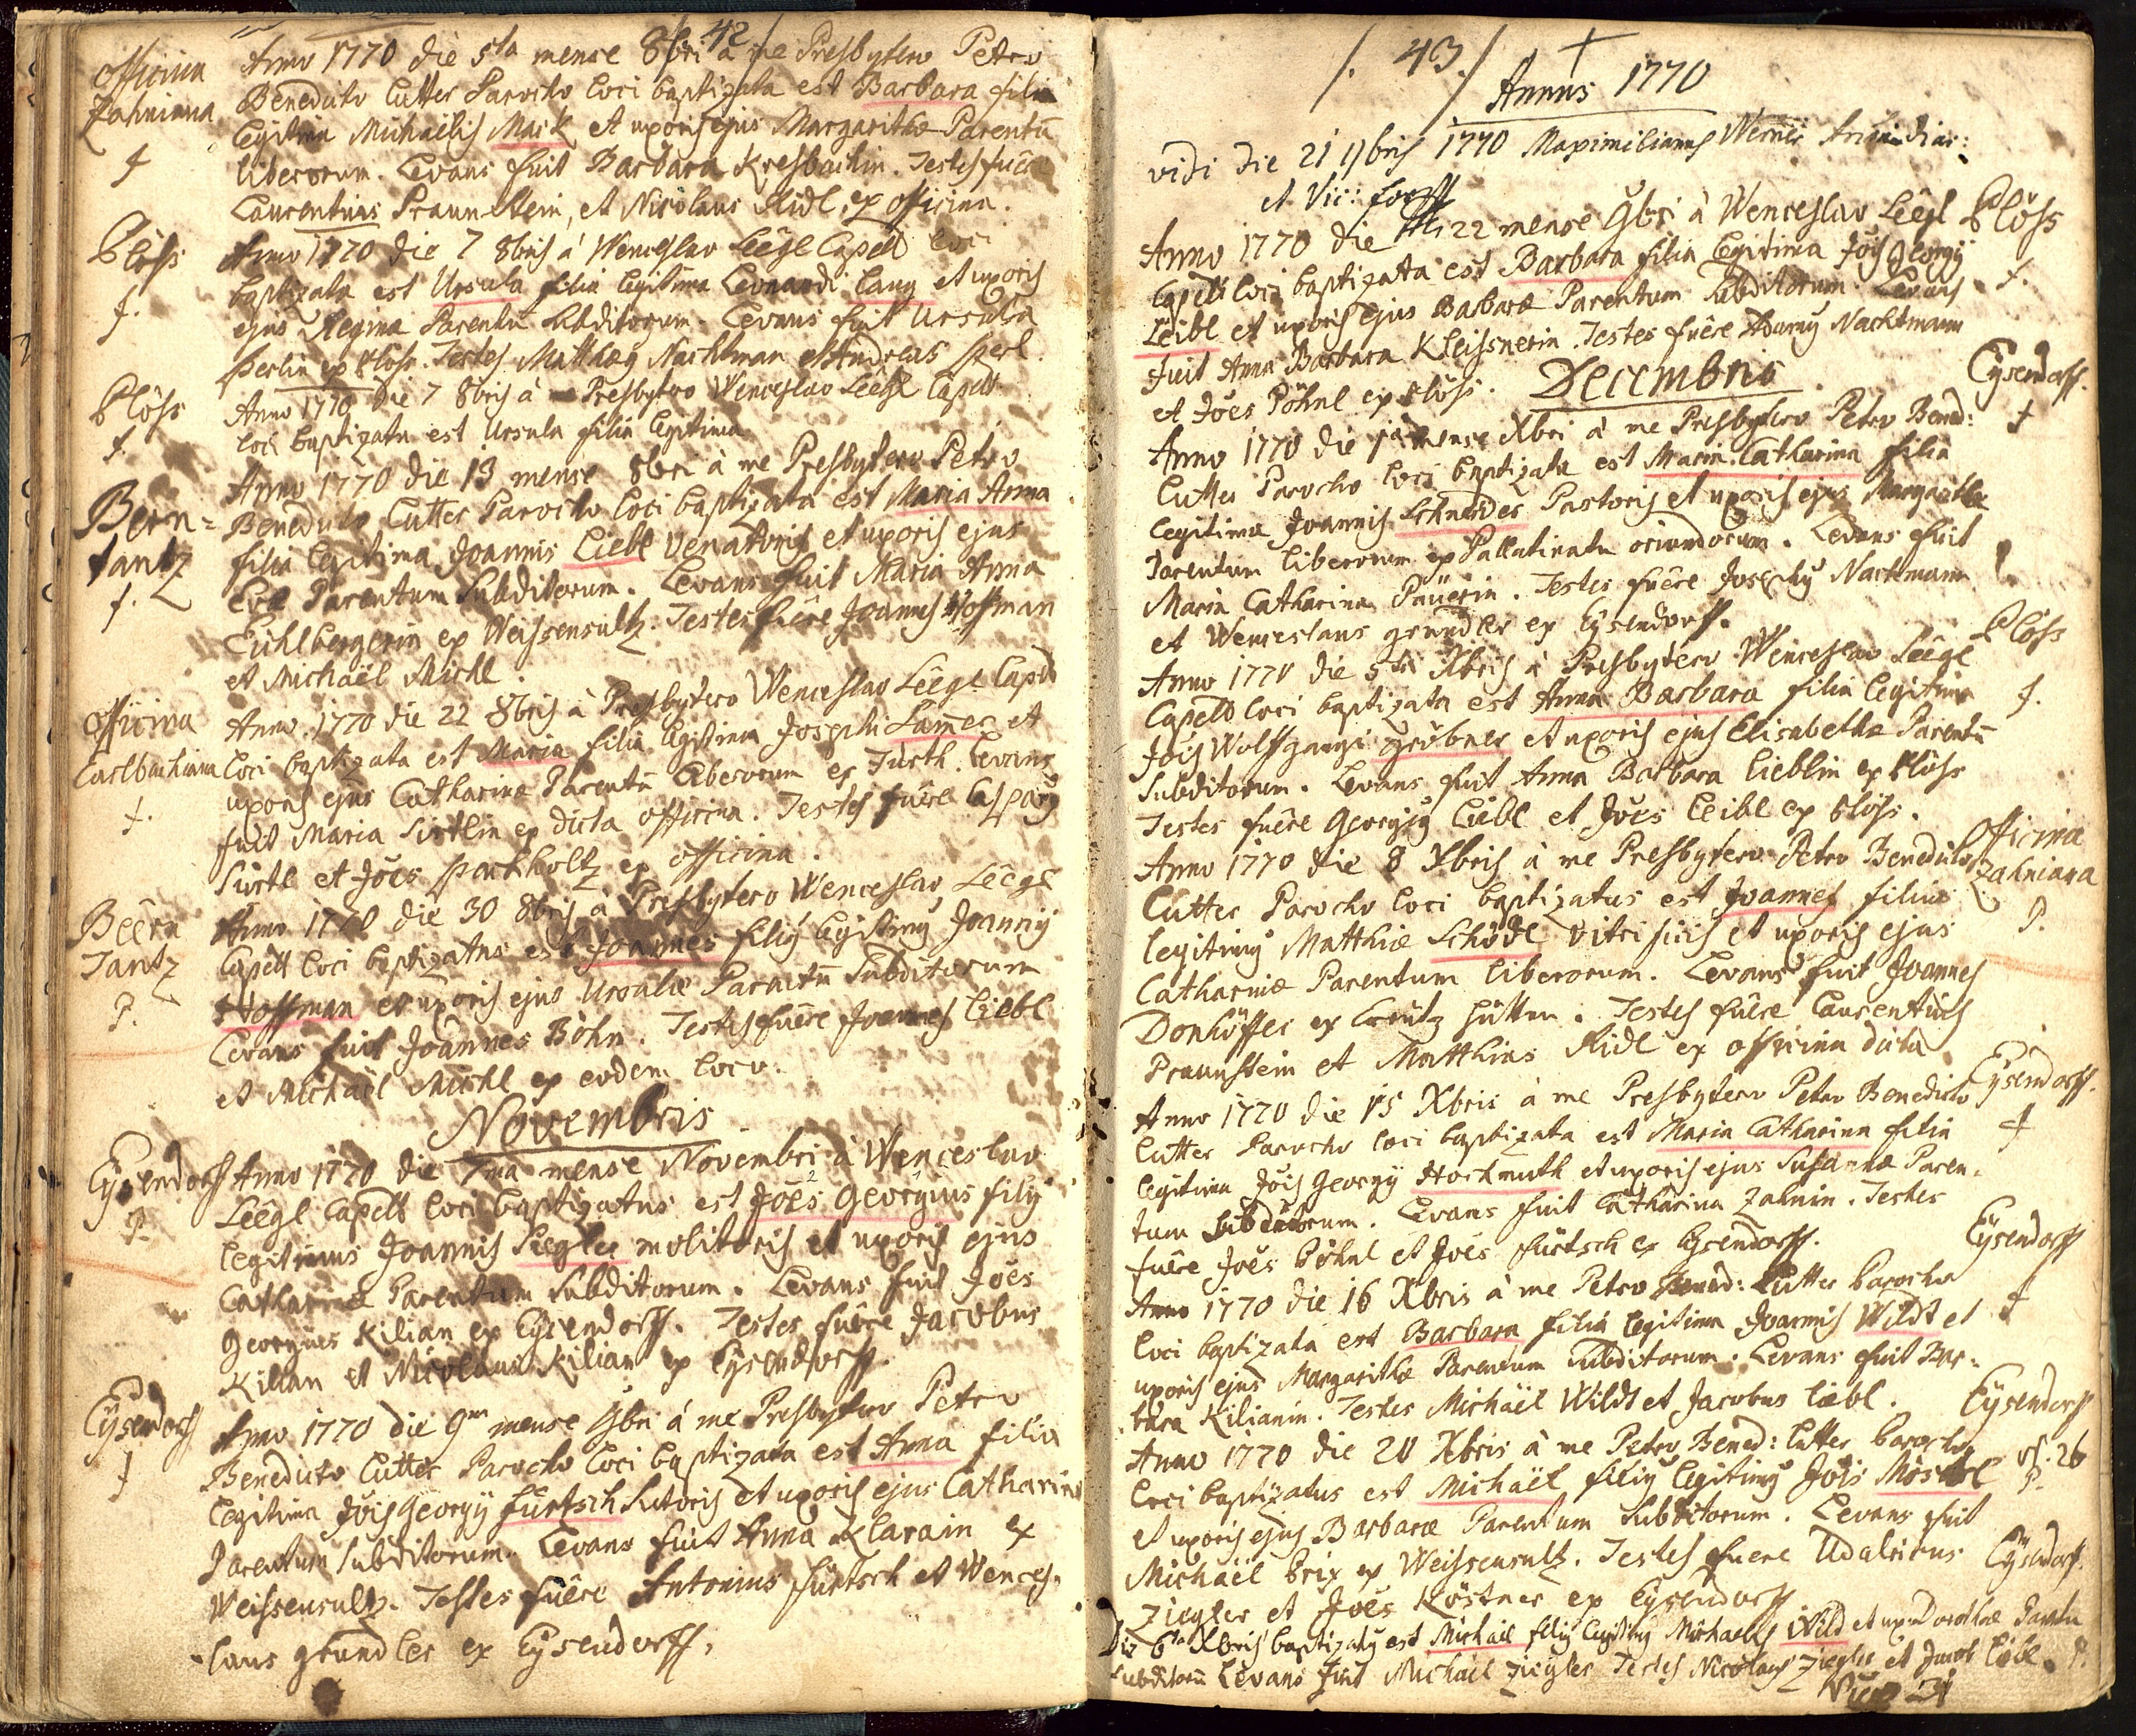 42
Officina Anno 1770 die 5ta mense 8bri à me Presbytero Petro
Zahniana Benedicto Cutter Parocho loci baptizata est Barbara filia
legitima Michaëlis Mack et uxoris ejus Margarithæ Parentū
f liberorum. Levans fuit Barbara Kresbachin. Testes fuêre
Laurentius Praun-stein, et Nicolaus Ridl ex officina.
Plöss Anno 1770 die 7 8bris à Wenceslao Léègl Capell loci
baptizata est Ursula filia legitima Leonardi Lang et uxoris
f. ejus Reginæ Parentū subditorum. Levans fuit Ursula
Perlin ex Plöss. Testes Matthæq Nachtman et Andreas Perl.
Plöss Anno 1770 die 7 8bris à Presbytero Wenceslao Léègl Capell
f. loci baptizata est Ursula filia legitima
Anno 1770 die 13 mense 8bri à me Presbytero Petro
Bern= Benedicto Cutter Parocho loci baptizata est Maria Anna
tantz filia legitima Joannis Liebl venatoris et uxoris ejus
f. Evæ Parentum Subditorum. Levans fuit Maria Anna
Lihlbergerin ex Weissensultz. Testes fuêre Joannes Hoffman
et Michaël Michl.
Officina Anno 1770 die 22 8bris à Presbytero Wenceslao Léègl Capell
Carlbachiana loci baptizata est Maria filia legitima Josephi Lam̄er et
uxoris ejus Catharinæ Parentū liberorum ex Furth. Levans
f. fuit Maria Sirtlin ex dicta officina. Testes fuêre Casparq
Sirtl et Jōes Parkholtz ex officina.
Béèrn Anno 1770 die 30 8bris à Presbytero Wenceslao Léègl
Tantz Capell loci baptizatus est Joannes filiq legitimq Joannis
P. Hoffman et uxoris ejus Ursulæ Parentū Subditorum
Levans fuit Joannes Böhm. Testes fuêre Joannes Liebl
et Michaël Michl ex eodem loco.
Novembris
Eÿsendorff Anno 1770 die 7ma mense Novembri à Wenceslao
P. Léègl Capell loci baptizatus est Jōes Georgius filiq
legitimus Joannis Piegler molitoris et uxoris ejus
Catharinæ Parentum Subditorum. Levans fuit Jōes
Georgius Kilian ex Eÿsendorff. Testes fuêre Jacobus
Kilian et Nicolaus Kilian ex Eÿsendorff.
Eÿsendorff Anno 1770 die 9na mense 9bri à me Presbytero Petro
f Benedicto Cutter Parocho loci baptizata est Anna filia
legitima Jōis Georgÿ Fürtsch Sutoris et uxoris ejus Catharinæ
Parentum Subditorum. Levans fuit Anna Klarain ex
Weissensultz. Testes fuêre Antonius Fürtsch et Wences-
laus Gründler ex Eÿsendorff.
/. 43 ./
Annus 1770
vidi die 21 9bris 1770 Maximilianus Werner
et Vic: for
Anno 1770 die 22 mense 9bri à Wenceslao Léègl Plöss
Capell loci baptizata est Barbara filia legitima Jōis Georgÿ
Leibl et uxoris ejus Barbaræ Parentum Subditorum. Levans f.
fuit Anna Barbara Kleissnerin. Testes fuêre Adamq Nachtmann
et Jōes Pöhnl ex Plöss.
Decembris Eÿsendorff.
Anno 1770 die 1a mense Xbri à me Presbytero Petro Bened: f
Cutter Parocho loci baptizata est Maria Catharina filia
legitima Joannis Schneider Pastoris et uxoris ejus Margarithæ
Parentum liberorum ex Pallatinatu oriundorum. Levans fuit
Maria Catharina Paüerin. Testes fuêre Josephq Nachtmann
et Wenceslaus Gründler ex Eÿsendorff.
Anno 1770 die 5ta Xbris à Presbytero Wenceslao Léègl Plöss
Capell loci baptizata est Anna Barbara filia legitima f.
Jōis Wolffgangi Gröbner et uxoris ejus Elisabethæ Parentū
Subditorum. Levans fuit Anna Barbara Lieblin ex Plöss
Testes fuêre Georgiq Liebl et Jōes Leibl ex Plöss.
Anno 1770 die 8 Xbris à me Presbytero Petro Benedicto Officina
Cutter Parocho loci baptizatus est Joannes filius Zahniana
legitimq Matthiæ Schödl vitrificis et uxoris ejus P.
Catharinæ Parentum liberorum. Levans fuit Joannes
Donhöffer ex Creütz hütten. Testes fuêre Laurentius
Praunstein et Matthias Ridl ex officina dicta
Anno 1770 die 15 Xbris à me Presbytero Petro Benedicto Eÿsendorff.
Cutter Parocho loci baptizata est Maria Catharina filia f
legitima Jōis Georgÿ Hochmuth et uxoris ejus Susannæ Paren-
tum Subditorum. Levans fuit Catharina Zahnin. Testes
fuêre Jōes Pöhnl et Jōes Fürtsch ex Eÿsendorff.
Anno 1770 die 16 Xbris à me Petro Bened: Cutter Parocho Eÿsendorff
loci baptizata est Barbara filia legitima Joannis Wildt et f
uxoris ejus Margarithæ Parentum Subditorum. Levans fuit Bar-
bara Kilianin. Testes Michaël Wildt et Jacobus Liebl.
Anno 1770 die 20 Xbris à me Petro Bened: Cutter Parocho Eÿsendorff
loci baptizatus est Michaël filiq legitimq Jōis Möschl 26 P.
et uxoris ejus Barbaræ Parentum Subditorum. Levans fuit
Michaël Brix ex Weissensultz. Testes fuere Udalricus
Ziegler et Jōes Köstner ex Eÿsendorff
Die 6ta Xbris baptizatq est Michaël filiq legitimq Michaelis Wild et ux: Dorotheæ Parentū Eÿsendorf.
subditorū Levans fuit Michaël Ziegler Testes Nicolaus Ziegler et Jacob Liebl. P.